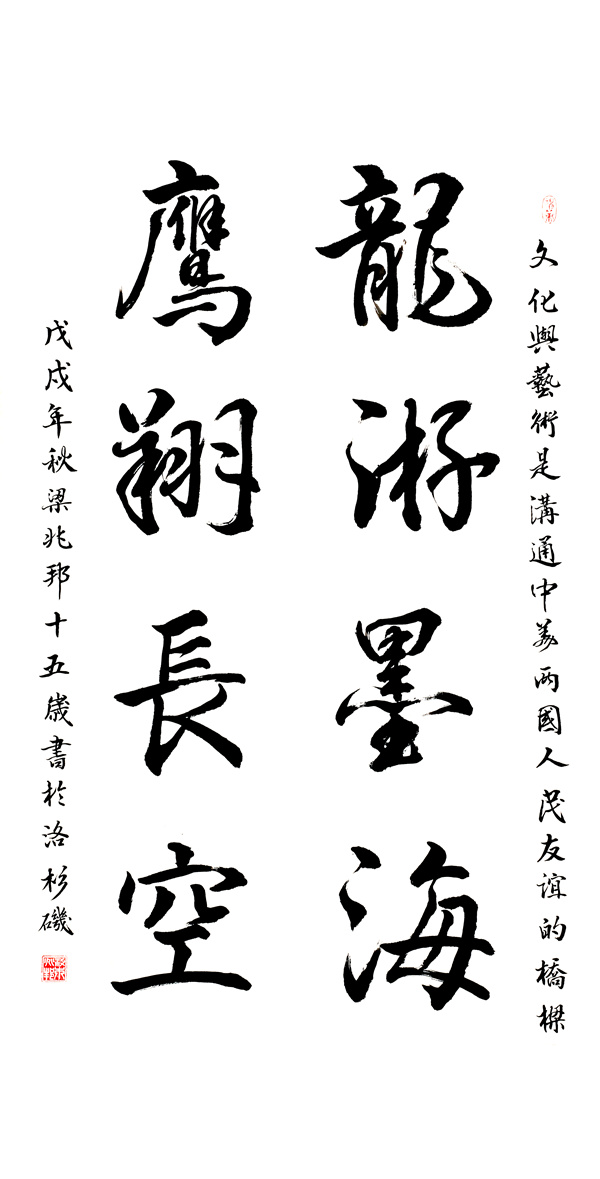 文化與藝術是溝通中美两國人民友誼的橋樑
龍游墨海
鹰翔長空
戊戌年秋梁兆邦十五歲書於洛杉磯